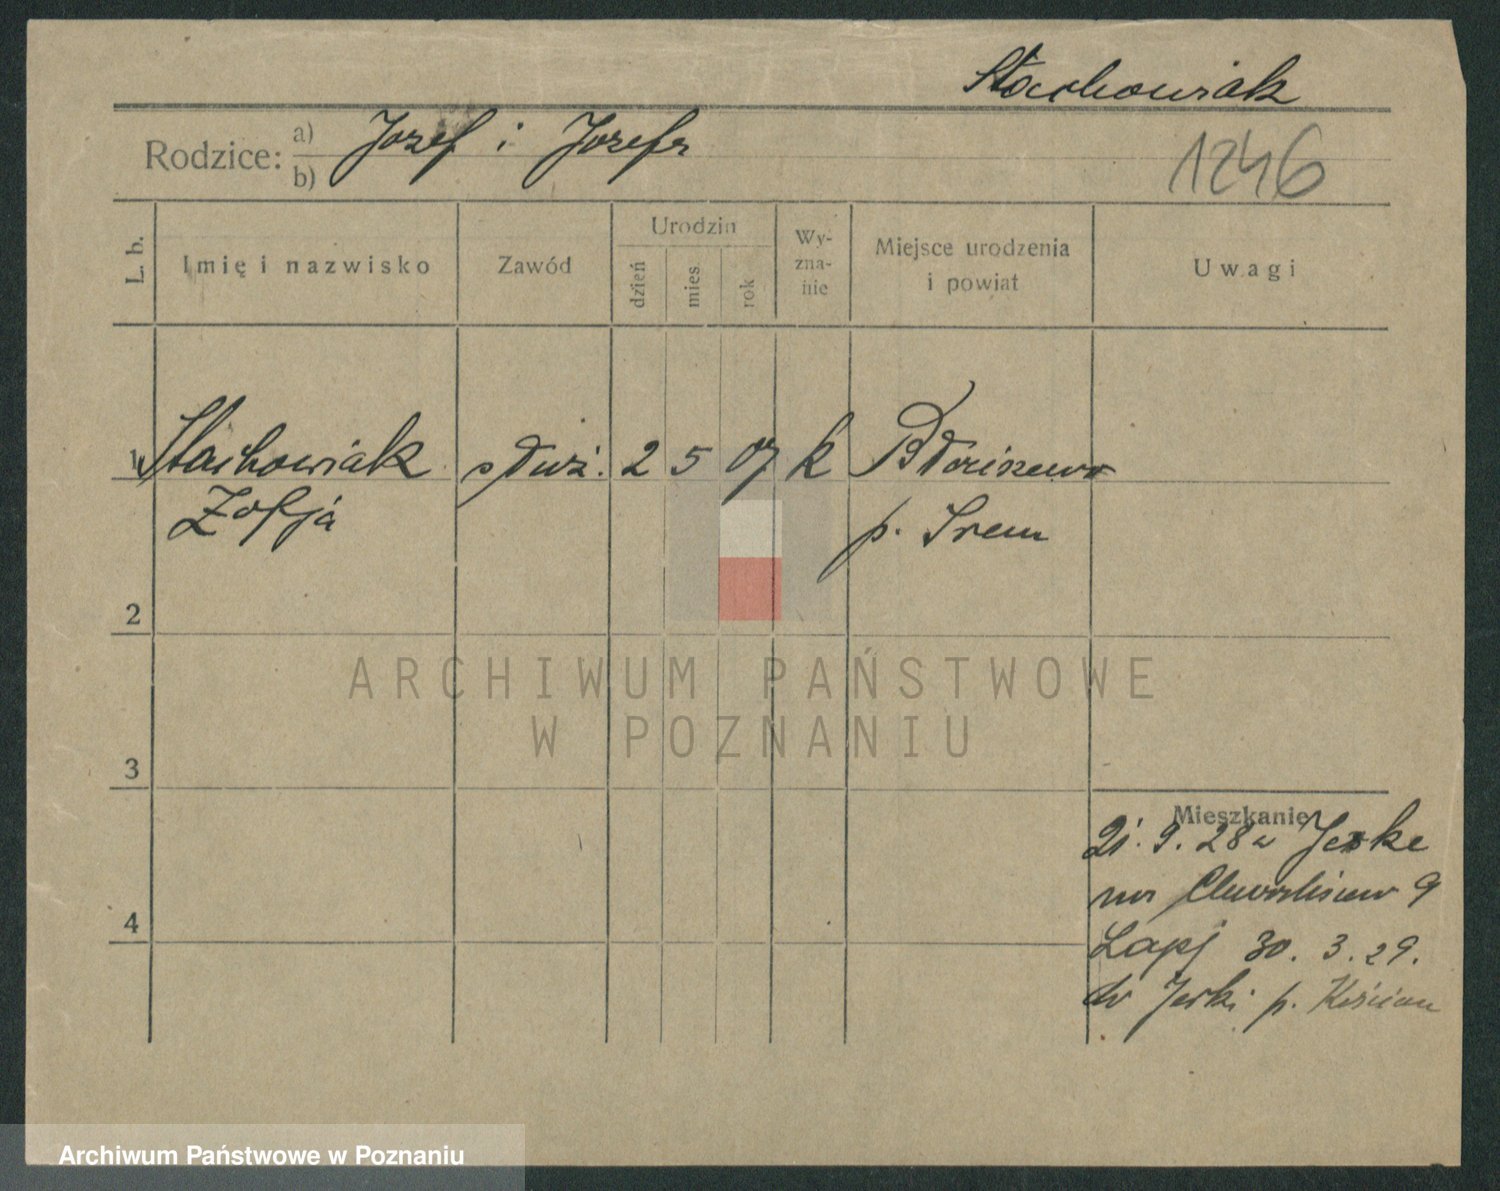 Stachowiak
Rodzice: a) Jozef i Jozefa
b)
1246
L. b.
Imię i nazwisko
Zawód
Urodzin
dzień
mies.
rok
Wy-
zna-
nie
Miejsce urodzenia
i powiat
Uwagi
1 Stachowiak służ. 2 5 07 k Błociszewo
Zofja p. Śrem
2
3
4
Mieszkanie
21. 9. 28 Jerke
9
30. 3. 29.
Jerki p. Kościan
ARCHIWUM PAŃSTWOWE
W POZNANIU
Archiwum Państwowe w Poznaniu